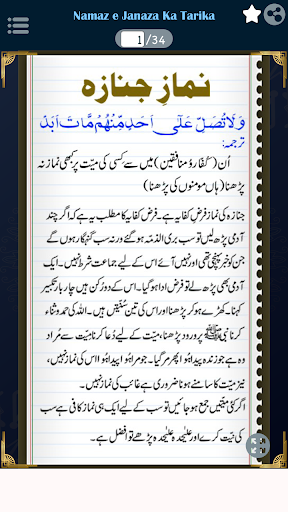 Namaz e Janaza Ka Tarika
1/34
نمازِ جنازہ
وَلَا تُصَلِّ عَلٰٓی اَحَدٍ مِّنْهُمْ مَّاتَ اَبَدًا
ترجمہ:
اُن (کفار و منافقین) میں سے کسی کی میّت پر کبھی نماز نہ
پڑھنا (ہاں مومنوں کی پڑھنا)
جنازہ کی نماز فرضِ کفایہ ہے۔ فرض کفایہ کا مطلب یہ ہے کہ اگر چند
آدمی پڑھ لیں تو سب بری الذمّہ ہو گئے ورنہ سب گنہگار ہوں گے
جن کو خبر پہنچی تھی اور نہیں آئے اس کے لیے جماعت شرط نہیں۔ ایک
آدمی بھی پڑھ لے تو فرض ادا ہو گیا۔ اس کے دو رکن ہیں چار بار تکبیر
کہنا۔ کھڑے ہو کر پڑھنا اور اس کی تین سُنّتیں ہیں۔ اللہ کی حمد و ثناء
کرنا نبی ﷺ پر درود پڑھنا، میّت کے لیے دُعا کرنا میّت سے مُراد
وہ ہے جو زندہ پیدا ہوا پھر مر گیا۔ جو مرا ہوا پیدا ہوا اس کی نماز نہیں،
نیز میّت کا سامنے ہونا ضروری ہے غائب کی نماز نہیں۔
اگر کئی میّتیں جمع ہو جائیں تو سب کے لیے ایک ہی نماز کافی ہے سب
کی نیّت کرے اور علیٰحدہ علیٰحدہ پڑھے تو افضل ہے۔